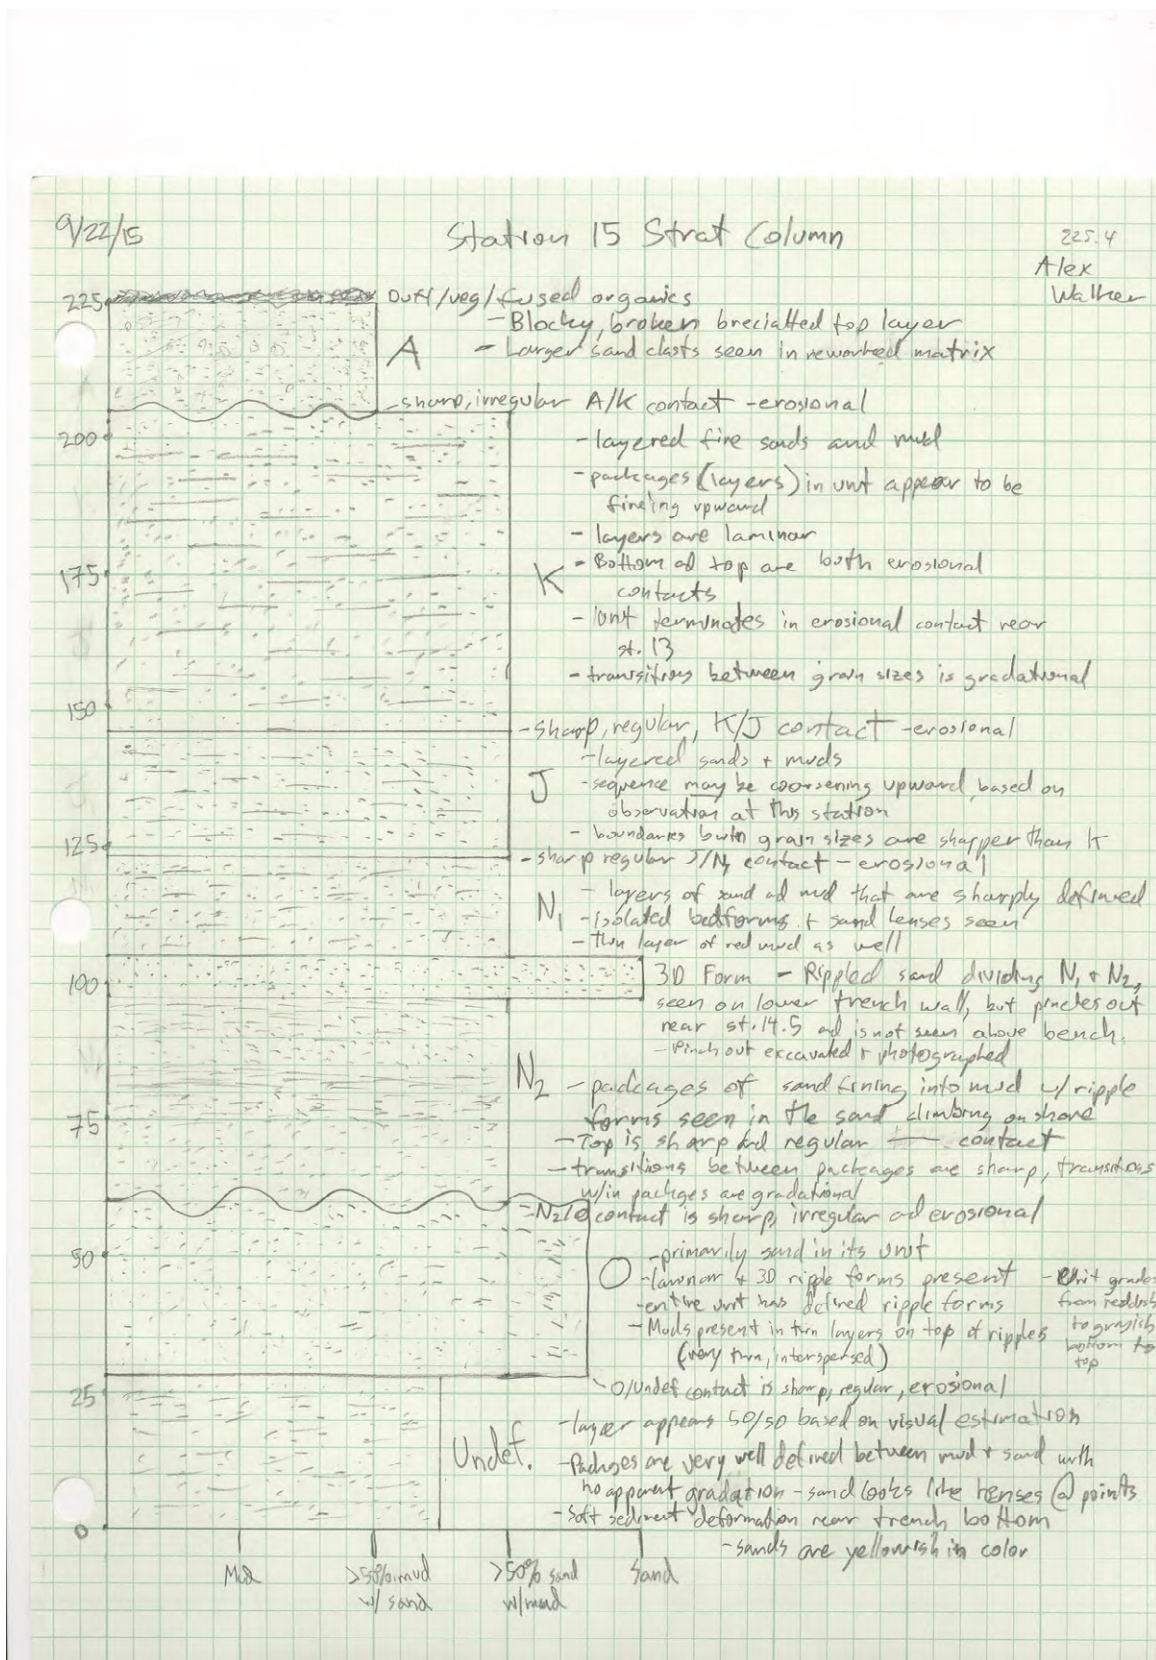 9/22/15
Station 15 Strat Column
225.4
Alex
Walker
225
Duff/veg/fused organics
- Blocky, broken brecialted top layer
A
- Larger sand clasts seen in reworked matrix
- sharp, irregular A/K contact - erosional
200
- layered fine sands and mud
- packages (layers) in unit appear to be
fineing upward
- layers are laminar
175
K
- Bottom ad top are both erosional
contacts
- Unit terminates in erosional contact near
st. 13
- transitions between grain sizes is gradational
150
- sharp, regular, K/J contact - erosional
- layered sands + muds
J
- sequence may be coarsening upward, based on
observation at this station
- boundaries bwtn grain sizes are sharper than K
125
- sharp regular J/N1 contact - erosional
N1
- layers of sand ad mud that are sharply defined
- isolated bedforms + sand lenses seen
- thin layer of red mud as well
100
3D Form - Rippled sand dividing N1 + N2,
seen on lower trench wall, but pinches out
near st. 14.5 ad is not seen above bench.
- Pinch out excavated + photographed
N2
- packages of sand fining into mud w/ ripple
forms seen in the sand climbing on shore
75
- Top is sharp and regular — contact
- transitions between packages are sharp, transitions
w/in packges are gradational
- N2/O contact is sharp, irregular ad erosional
50
- primarily sand in its unit
O
- laminar + 3D ripple forms present
- entire unit has defined ripple forms
- Muds present in thin layers on top of ripples
(very thin, interspersed)
- Unit grades
from reddish
to grayish
bottom to
top
- O/undef contact is sharp, regular, erosional
25
- layer appears 50/50 based on visual estimation
Undef.
- Packges are very well defined between mud + sand with
no apparent gradation - sand looks like lenses @ points
- Soft sediment deformation near trench bottom
0
- sands are yellowish in color
Mud
>50% mud
w/ sand
>50% sand
w/mud
Sand